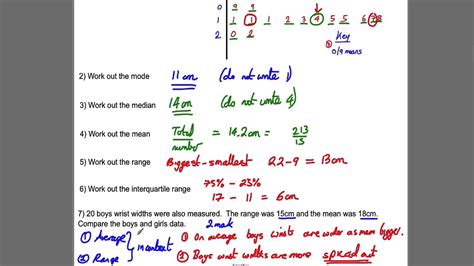 0 9 9
1 1 1 2 3 4 5 5 6 7 8
2 0 2
Key
0/9 means
2) Work out the mode 11 cm (do not write 1)
3) Work out the median 14cm (do not write 4)
4) Work out the mean Total number = 14.2cm = 213 15
5) Work out the range Biggest - smallest 22 - 9 = 13cm
75% - 25%
6) Work out the interquartile range
17 - 11 = 6cm
7) 20 boys wrist widths were also measured. The range was 15cm and the mean was 18cm.
Compare the boys and girls data. 2 mark
① Average
② Range
in context
① On average boys wrists are wider as mean bigger.
② Boys wrist widths are more spread out